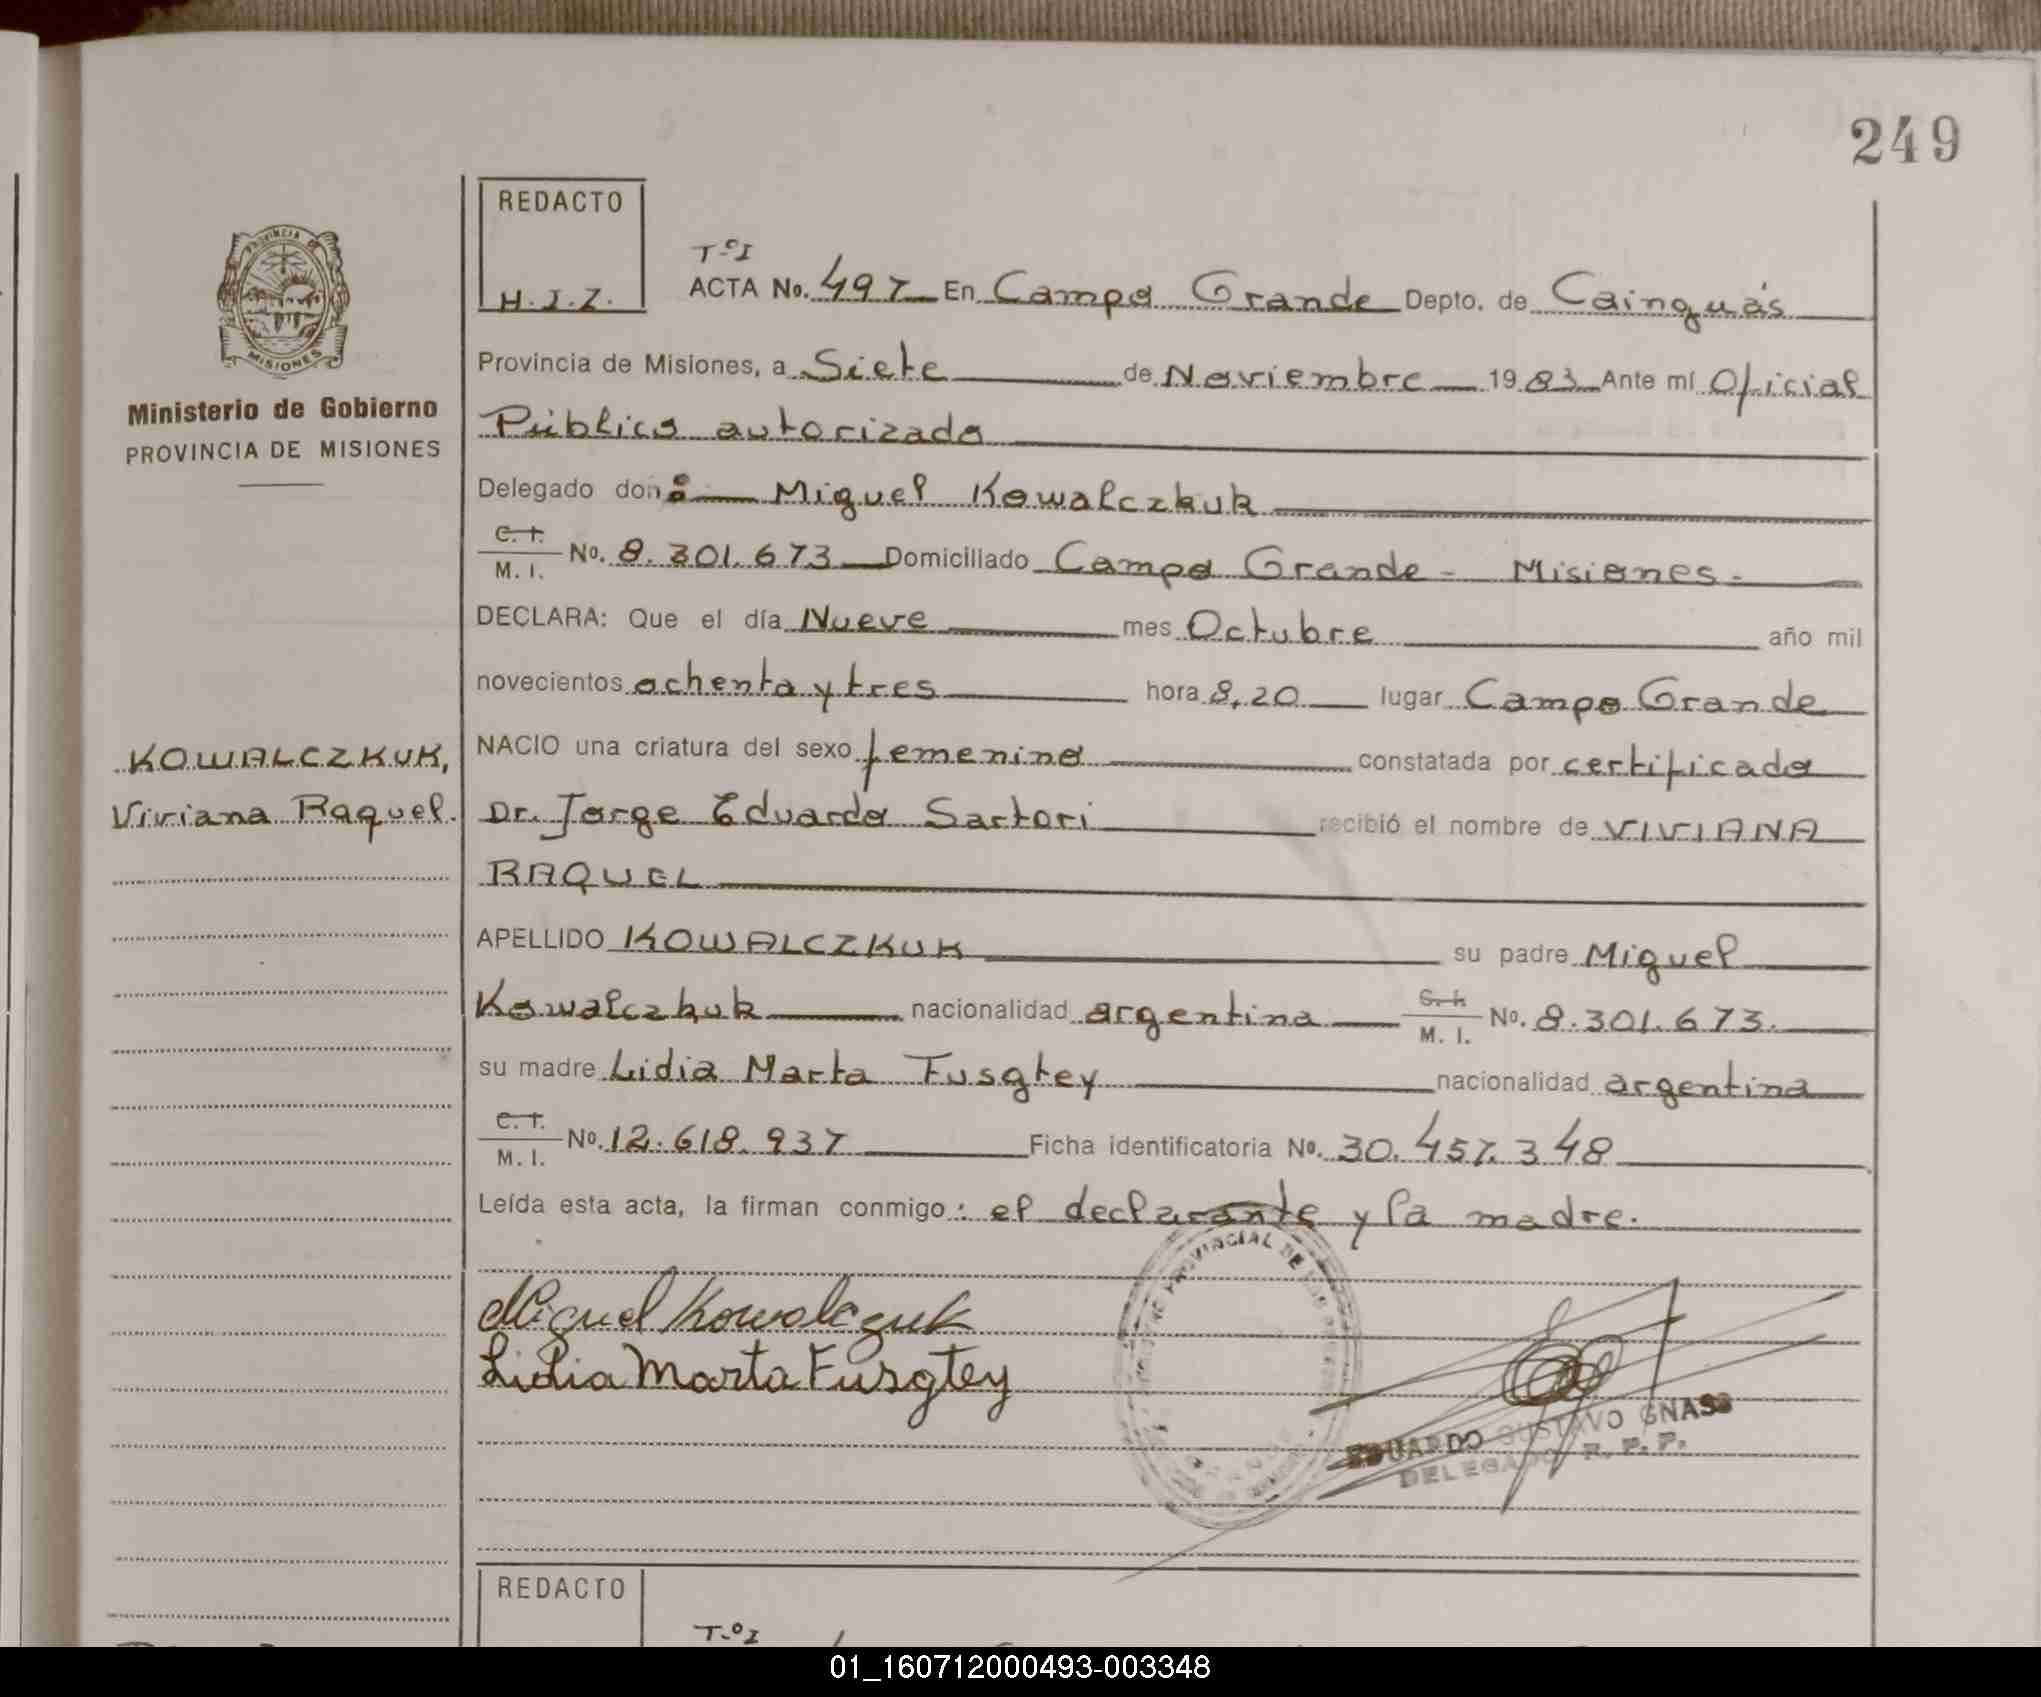 249
REDACTO
H.J.Z.
PROVINCIA DE
MISIONES
Ministerio de Gobierno
PROVINCIA DE MISIONES
KOWALCZKUK,
Viviana Raquel.
T.º I
ACTA No. 497 En Campo Grande Depto. de Cainguás
Provincia de Misiones, a Siete de Noviembre 1983 Ante mí Oficial
Público autorizado
Delegado don: Miguel Kowalczkuk
C.I. M. I. No. 8.301.673 Domiciliado Campo Grande - Misiones.
DECLARA: Que el día Nueve mes Octubre año mil
novecientos ochenta y tres hora 8,20 lugar Campo Grande
NACIO una criatura del sexo femenino constatada por certificado
Dr. Jorge Eduardo Sartori recibió el nombre de VIVIANA
RAQUEL
APELLIDO KOWALCZKUK su padre Miguel
Kowalczkuk nacionalidad argentina C.I. M. I. No. 8.301.673.
su madre Lidia Marta Fusgtey nacionalidad argentina
C.I. M. I. No. 12.618.937 Ficha identificatoria No. 30.457.348
Leída esta acta, la firman conmigo: el declarante y la madre.
Miguel Kowalczuk
Lidia Marta Fusgtey
PROVINCIAL DE
EDUARDO GUSTAVO GNASS
DELEGADO R. P. P.
REDACTO
T.º I
01_160712000493-003348